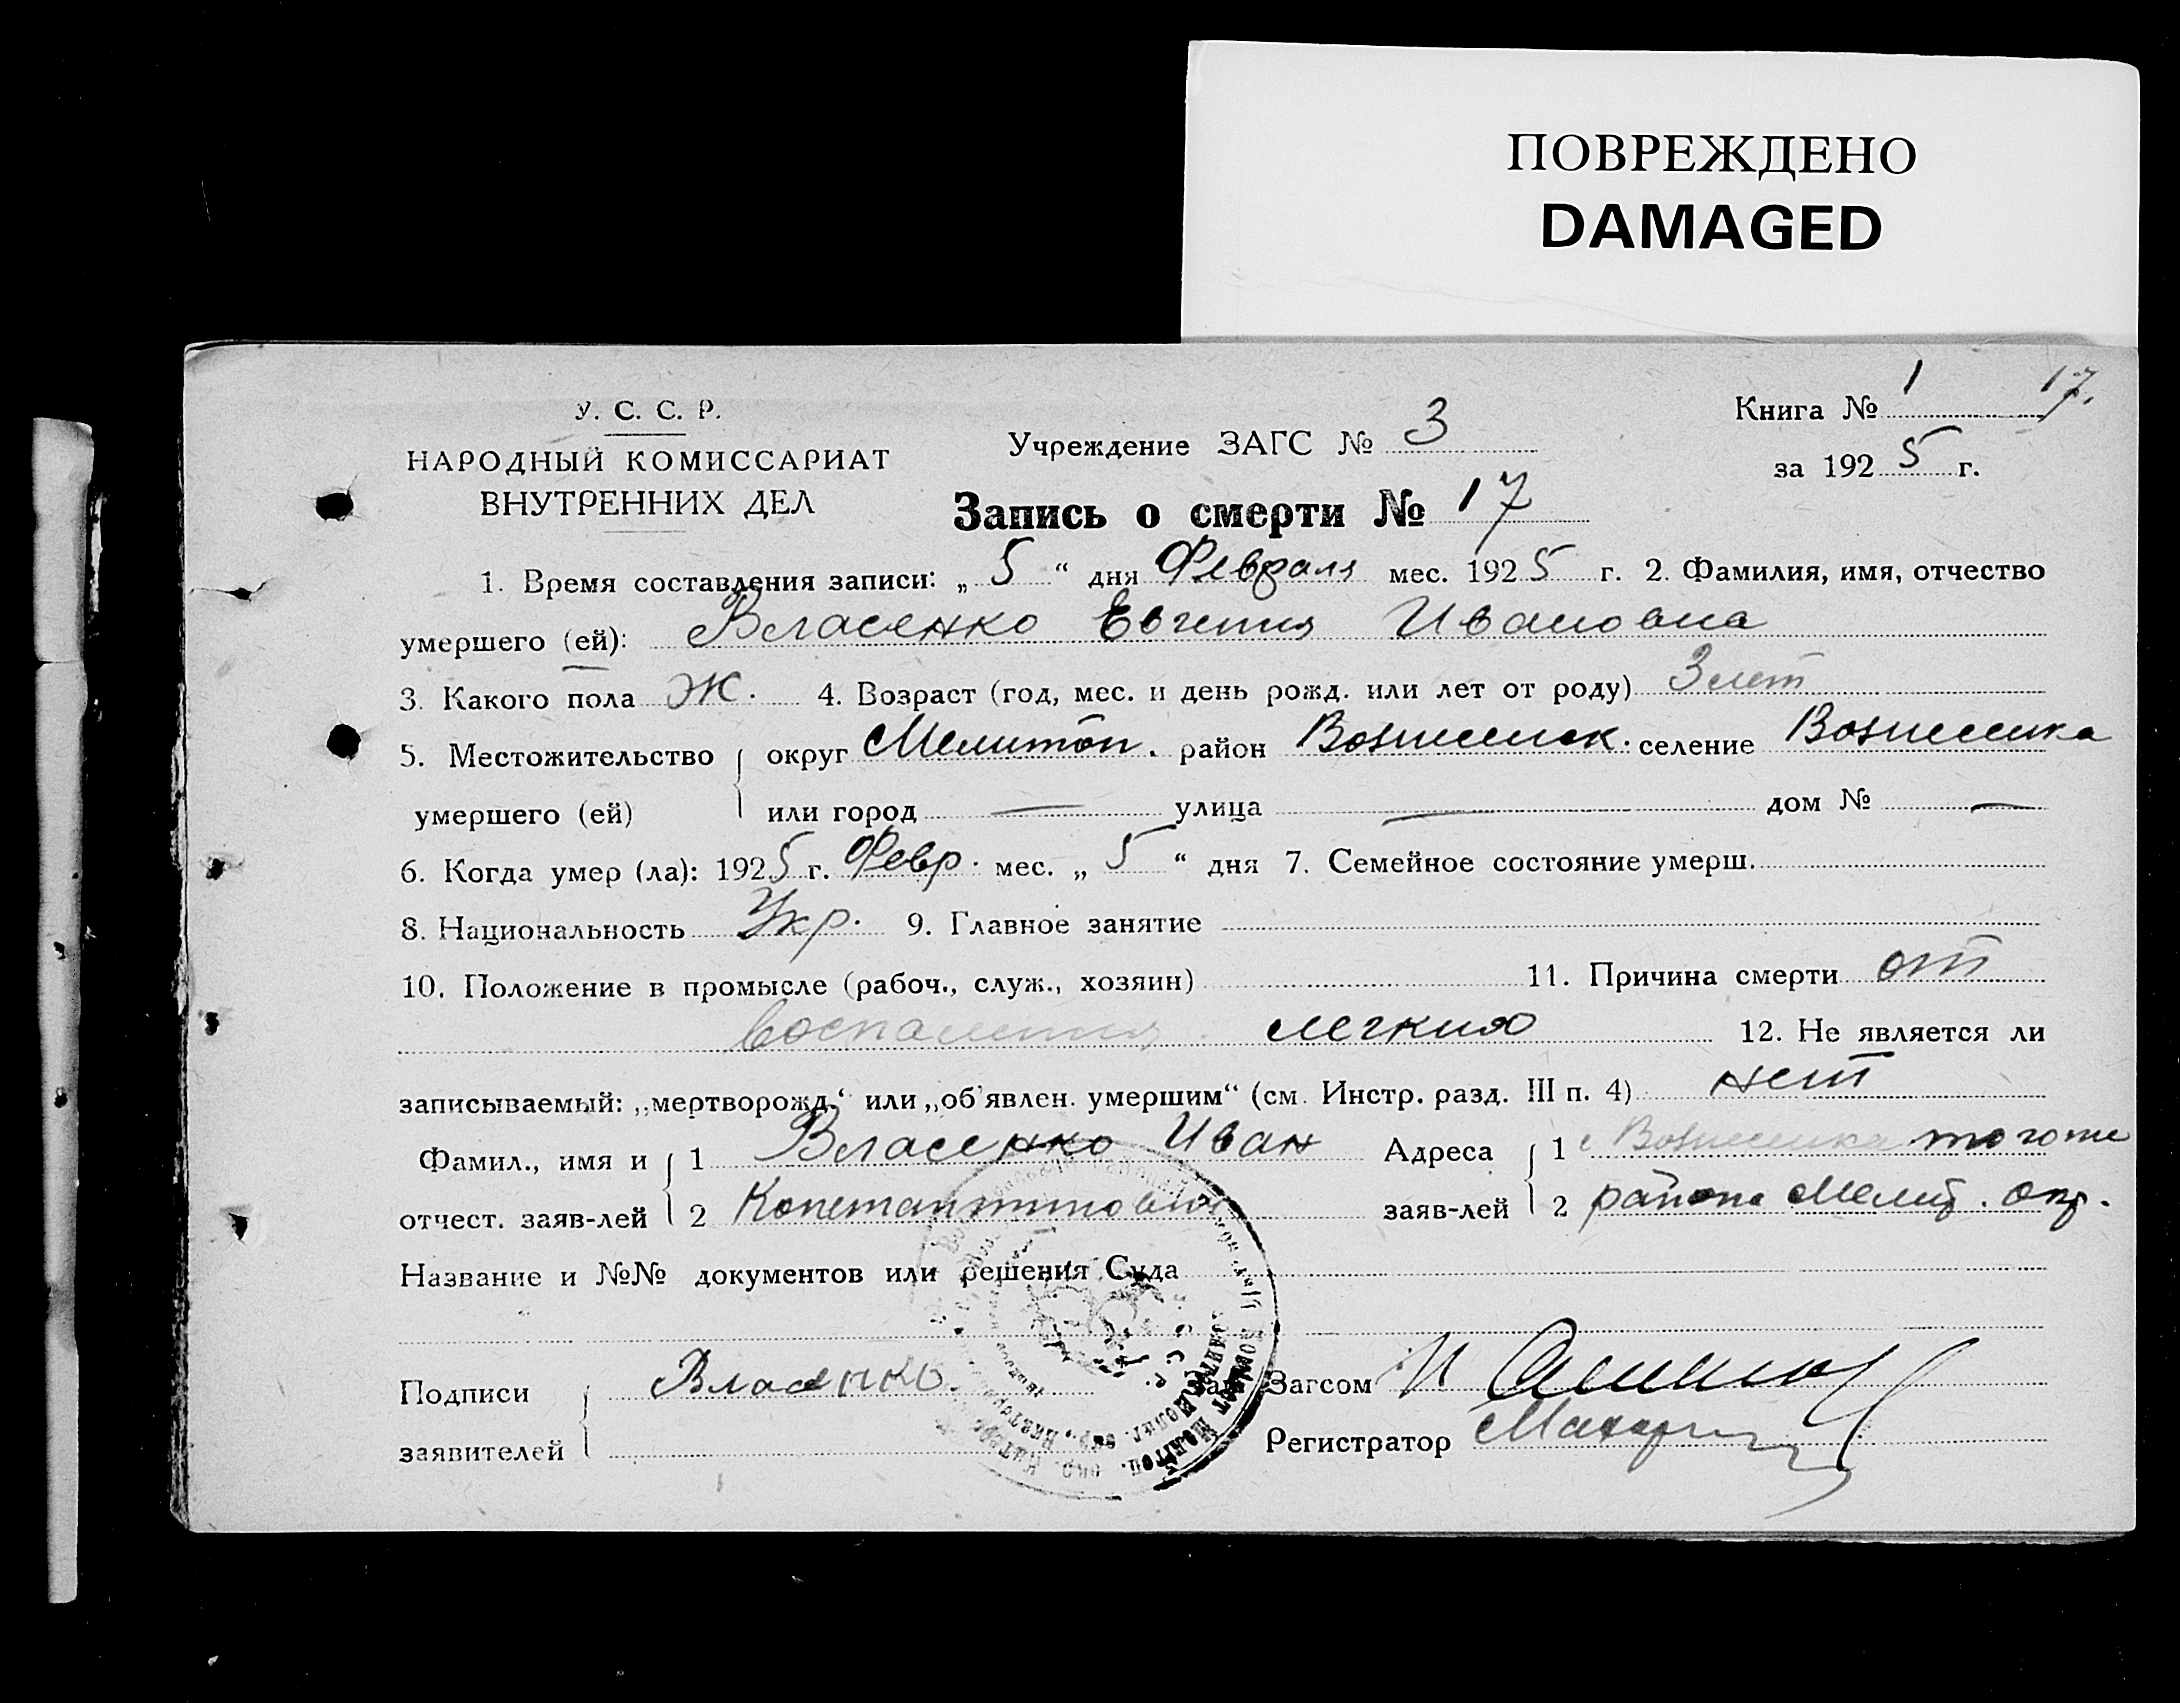 ПОВРЕЖДЕНО
DAMAGED
У. С. С. Р.
НАРОДНЫЙ КОМИССАРИАТ
ВНУТРЕННИХ ДЕЛ
Учреждение ЗАГС № 3
Книга № 1 17.
за 1925 г.
Запись о смерти № 17
1. Время составления записи: „5“ дня Февраля мес. 1925 г. 2. Фамилия, имя, отчество
умершего (ей): Власенко Евгения Ивановна
3. Какого пола Ж. 4. Возраст (год, мес. и день рожд. или лет от роду) 3 лет
5. Местожительство округ Мелитоп. район Вознесенск. селение Вознесенка
умершего (ей) или город — улица — дом № —
6. Когда умер (ла): 1925 г. Февр. мес. „5“ дня 7. Семейное состояние умерш.
8. Национальность Укр. 9. Главное занятие
10. Положение в промысле (рабоч., служ., хозяин) 11. Причина смерти от
воспаления легких 12. Не является ли
записываемый: „мертворожд.“ или „об'явлен. умершим“ (см. Инстр. разд. III п. 4) нет
Фамил., имя и 1 Власенко Иван Адреса 1 с Вознесенка того же
отчест. заяв-лей 2 Константинович заяв-лей 2 района Мелит. окр.
Название и №№ документов или решения Суда
Подписи Власенко Зав. Загсом
заявителей Регистратор